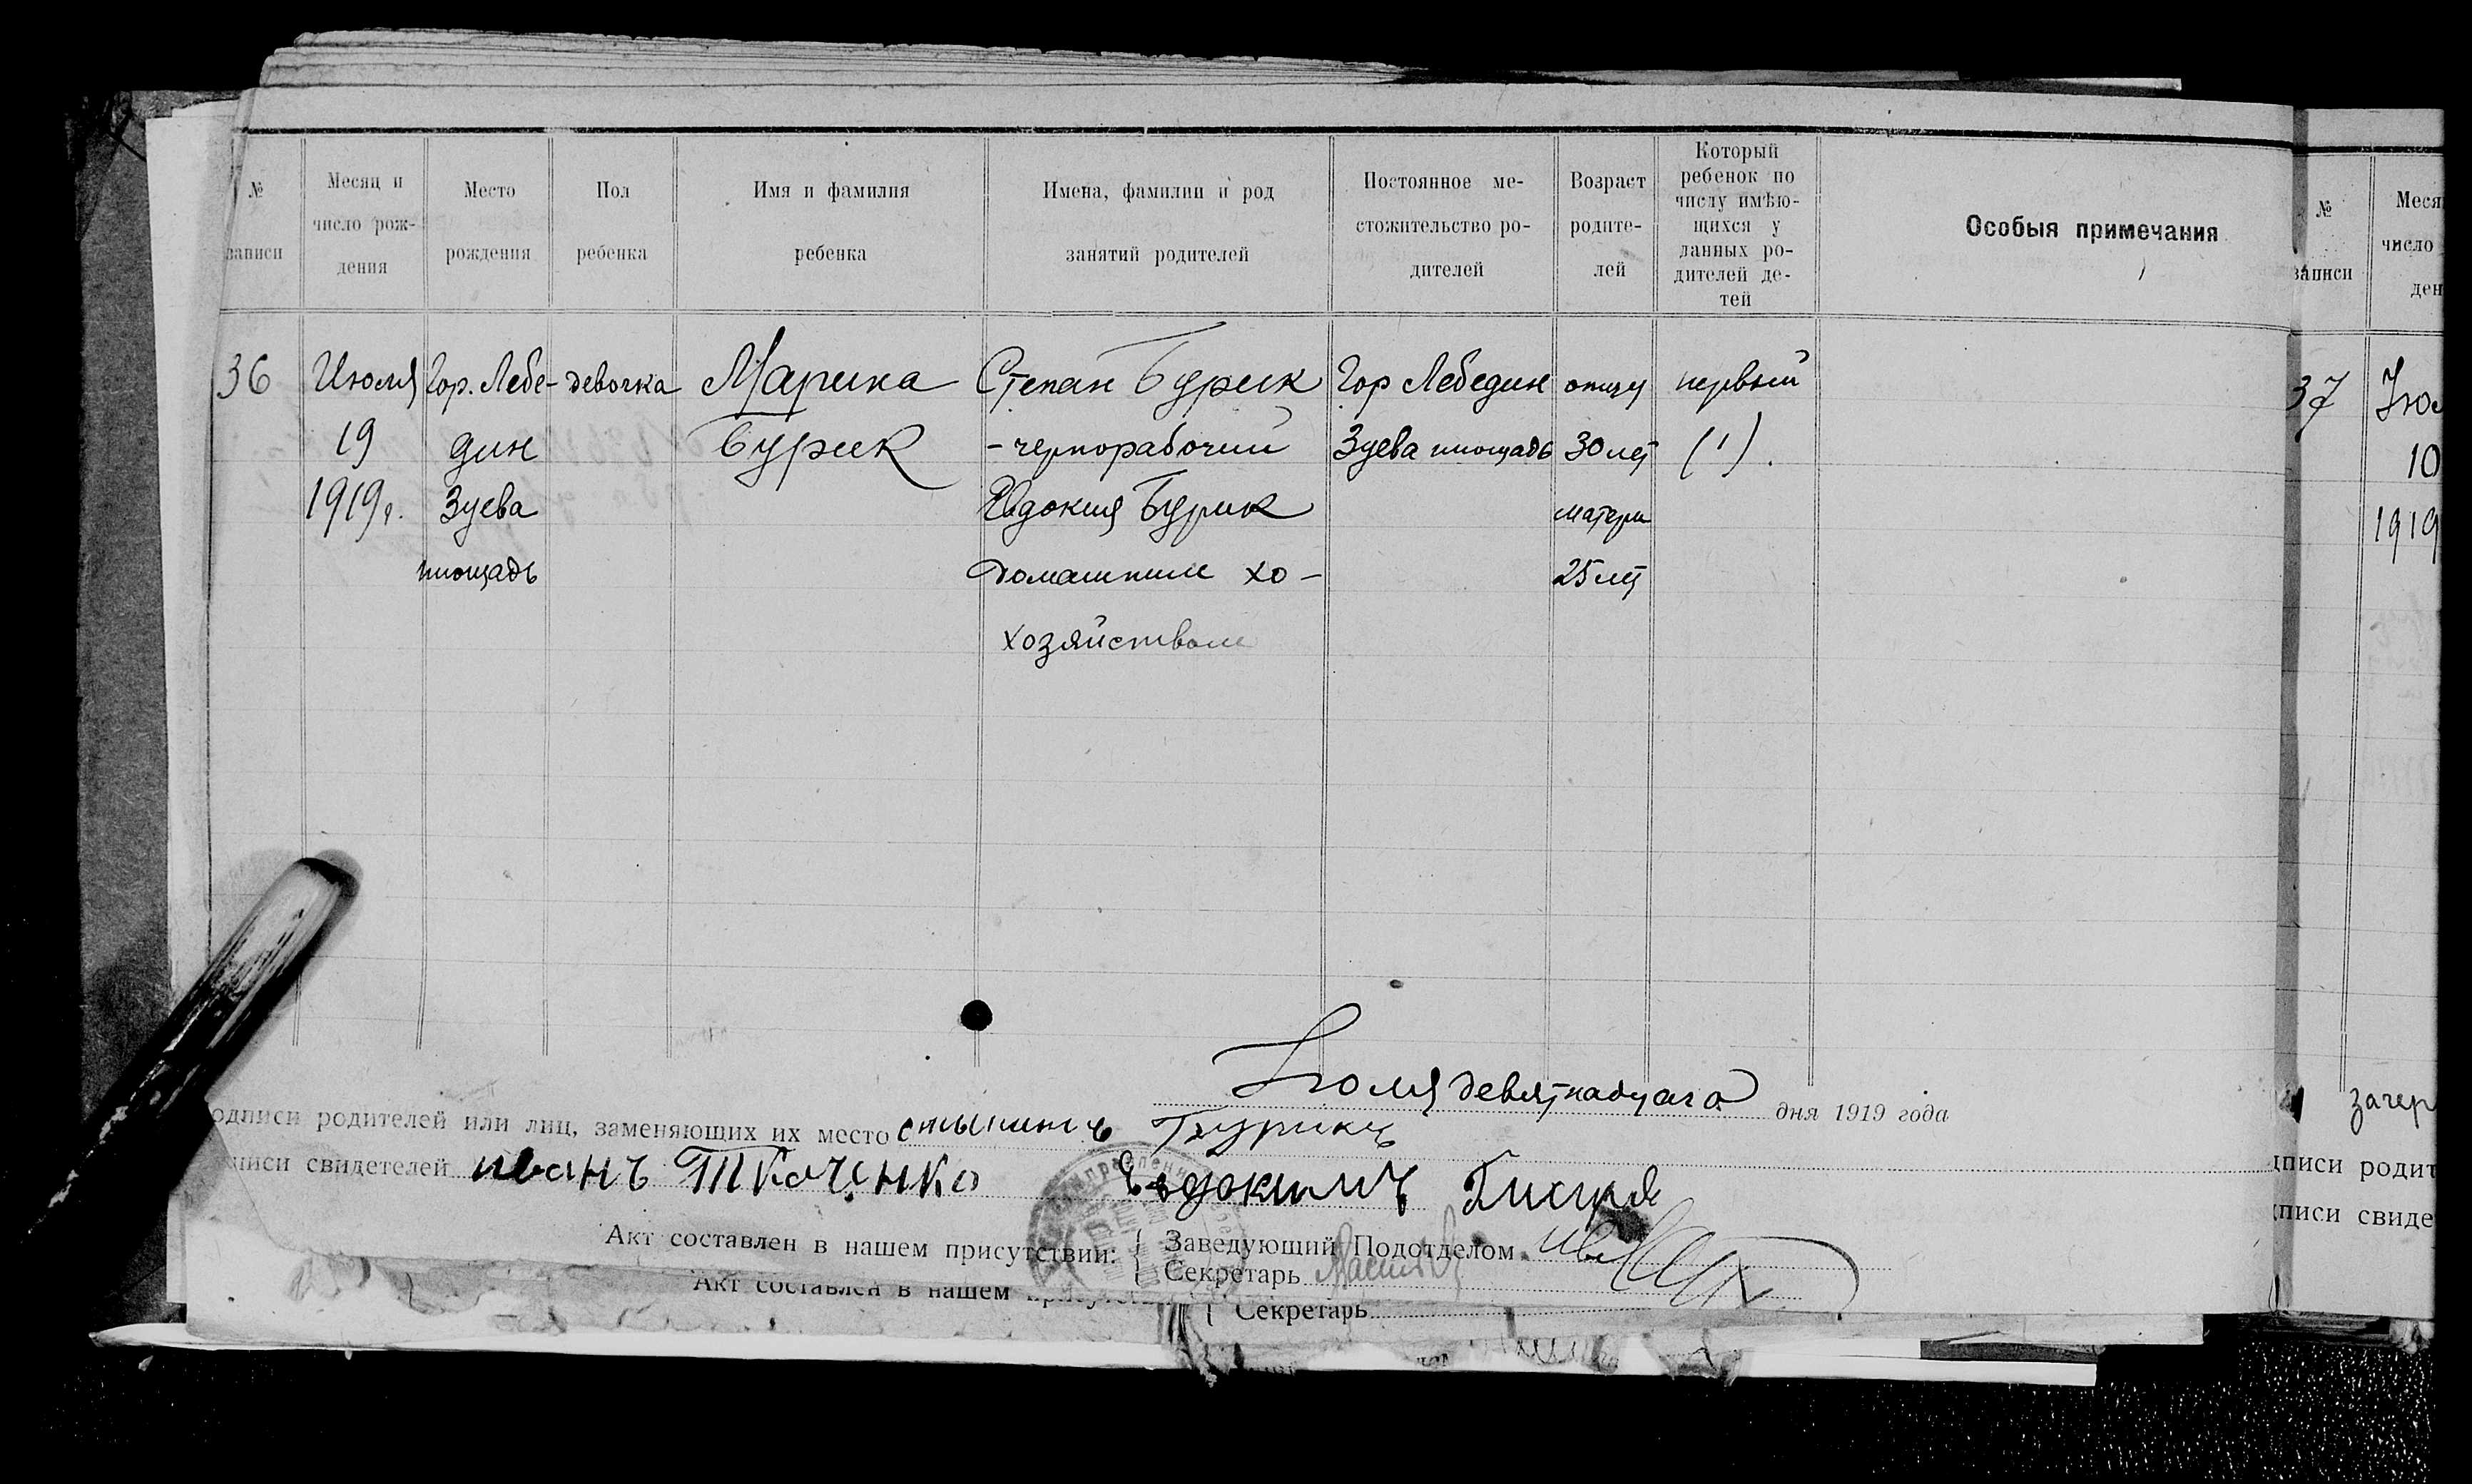 № записи
Месяц и число рождения
Место рождения
Пол ребенка
Имя и фамилия ребенка
Имена, фамилии и род занятий родителей
Постоянное местожительство родителей
Возраст родителей
Который ребенок по числу имѣющихся у данных родителей детей
Особыя примечания
36
Июля
19
1919 г.
Гор. Лебе-
дин
Зуева
площадь
девочка
Марика
Бурик
Степан Бурик
- чернорабочий
Евдокия Бурик
домашним хо-
хозяйством
Гор Лебедин
Зуева площадь
отцу
30 лет
матери
25 лет
первый
(1).
Июля девятнадцаго дня 1919 года
одписи родителей или лиц, заменяющих их место Бурикъ
писи свидетелей иванъ Ткаченко Евдокимъ
Акт составлен в нашем присутствии: { Заведующий Подотделом
Секретарь
Акт составлен в нашем
Секретарь
№
записи
Меся
число
ден
37
Июл
10
1919
зачер
дписи родит
писи свиде